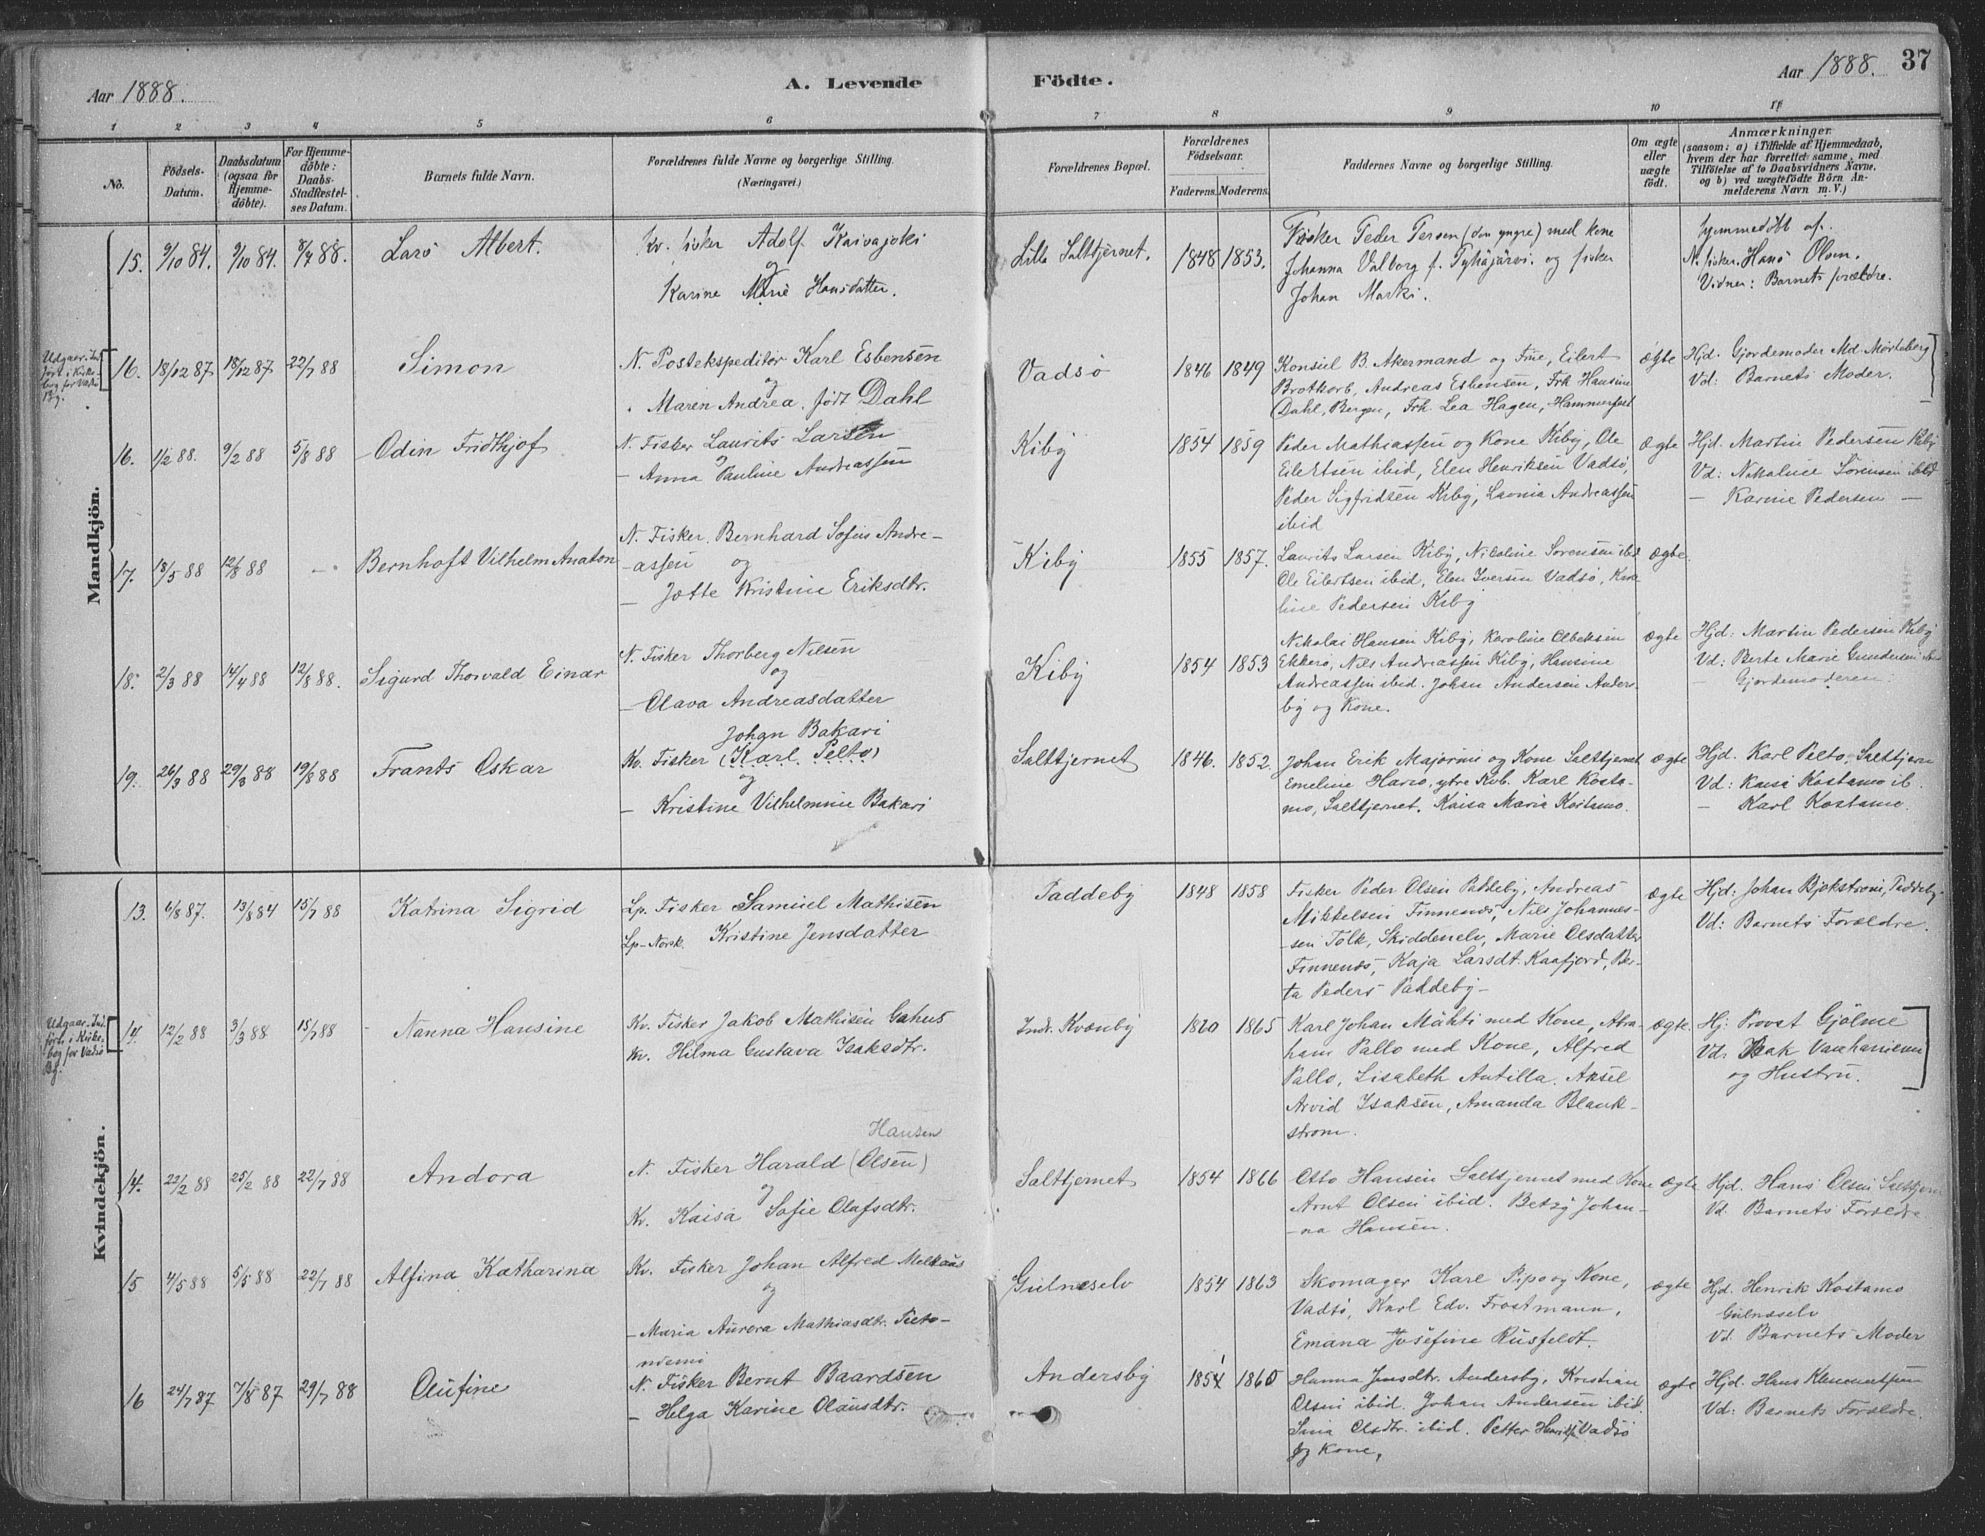 Aar 1888.
A. Levende
Födte.
Aar 1888.
37
1 2 3 4 5 6 7 8 9 10 11
No.
Födsels-
Datum.
Daabsdatum
(ogsaa for
Hjemme-
döbte).
For Hjemme-
döbte:
Daabs-
Stadfæstel-
ses Datum.
Barnets fulde Navn.
Forældrenes fulde Navne og borgerlige Stilling.
(Næringsvei.)
Forældrenes Bopæl.
Forældrenes
Födselsaar.
Faderens. Moderens.
Faddernes Navne og borgerlige Stilling.
Om ægte
eller
uægte
födt.
Anmærkninger.
(saasom: a) i Tilfælde af Hjemmedaab,
hvem der har forrettet samme, med
Tilföielse af to Daabsvidners Navne,
og b) ved uægtefödte Börn An-
melderens Navn m. V.)
Mandkjön.
15. 9/10 84. 9/10 84. 8/7 88. Lars Albert.
Kv. fisker Adolf Kaivajoki
og
Karine Marie Hansdatter.
Lille Salttjernet. 1848 1853.
Fisker Peder Persen (den yngre) med kone
Johanna Valborg f. Pyhäjärvi. og fisker
Johan Marki.
hjemmedöbt af.
N. fisker Hans Olsen.
Vidner: Barnets forældre.
Udgaar. Ind-
ført i Kirke-
bog for Vadsø
By.
16. 18/12 87 18/12 87 22/7 88 Simon
N. Postekspeditör Karl Esbensen
og
Maren Andrea født Dahl
Vadsø 1846 1849
Konsul B. Akermand og Frue, Eilert
Brotkorb, Andreas Esbensen, Frk Hansine
Dahl, Bergen, Frk Lea Hagen, Hammerfest
ægte
Hjd. Gjordemoder Md. Morteberg
Vd: Barnets Moder.
16. 1/2 88. 9/2 88 5/8 88 Odin Fridthjof
N. Fisker Laurits Larsen
og
— Anna Pauline Andreassen
Kiby 1854 1859
Peder Mathiassen og Kone Kiby, Ole
Eilertsen ibid, Elen Henriksen Vadsø,
Peder Sigfridsen Kiby, Lavnia Andreassen
ibid
ægte
Hjd: Martin Pedersen Kiby
Vd: Nikoline Sørensen ibid
— Karine Pedersen —
17. 18/5 88 12/8 88 — Bernhoft Vilhelm Anaton
N. Fisker. Bernhard Sofus Andre-
-assen og
— Jætte Kristine Eriksdtr.
Kiby 1855 1857.
Laurits Larsen Kiby, Nikoline Sørensen ibid
Ole Eilertsen ibid, Elen Iversen Vadsø, Karo-
line Pedersen Kiby
ægte
18. 2/3 88 14/4 88 12/8 88. Sigurd Thorvald Einar
N. Fisker Thorberg Nilsen
og
— Olava Andreasdatter
Kiby 1854 1853
Nikolai Hansen Kiby, Karoline Olbeksen
Ekkerø, Nils Andreassen Kiby, Hansine
Andreassen ibid. Johan Andersen Anders-
by og Kone.
ægte
Hjd: Martin Pedersen Kiby
Vd: Berte Marie Gundersen ibid
— Gjordemoderen.
19. 26/3 88 29/3 88 19/8 88 Frants Oskar
Johan Bakari
Kv. Fisker (Karl Pelto)
og
— Kristine Vilhelmine Bakari
Salttjernet 1846. 1852.
Johan Erik Majormi og Kone Salttjernet
Emeline Hario, ytre Kvb. Karl Kosta-
mo, Salttjernet. Kaisa Maria Kostamo.
ægte
Hjd: Karl Pelto. Salttjern
Vd: Kaisa Kostamo ib.
— Karl Kostamo.
Kvindekjön.
13. 6/8 87. 13/8 84 15/7 88 Katrina Sigrid
Lp. Fisker Samuel Mathisen
Lp-Norsk. Kristine Jensdatter
Paddeby 1848 1858
Fisker Peder Olsen Paddeby, Andreas
Mikkelsen Finnenæs, Nils Johannes-
-sen Tolk, Skiddenelv, Marie Olsdatter
Finnenæs, Kaja Larsdt. Kaafjord, Ber-
ta Peders Paddeby —
ægte
Hjd: Johan Bjøkstrøm, Paddeby.
Vd: Barnets Forældre.
Udgaar. Ind-
føres i Kirke-
bog for Vadsø
By.
14. 12/2 88 3/3 88 15/7 88 Nanna Hansine
Kv. Fisker Jakob Mathisen Gahus
Kv. Hilma Gustava Isaksdtr.
Indr. Kvænby 1820 1865
Karl Johan Mähti med Kone, Abra-
ham Pallo med Kone, Alfred
Pallo, Lisabeth Antilla. Aksel
Arvid Isaksen, Amanda Blank-
strøm.
ægte
Hj: Provst Gjølme
Vd: Isak Vanhanienen
og Hustru.
14. 22/2 88 25/2 88 22/7 88 Andora
Hansen
N. Fisker Harald (Olsen)
og
Kv. Kaisa Sofie Olafsdtr.
Salttjernet 1854 1866
Otto Hansen Salttjernet med Kone
Arnt Olsen ibid. Betzy Johan-
-na Hansen.
ægte
Hjd. Hans Olsen Salttjern
Vd. Barnets Forældre
15 4/5 88 5/5 88 22/7 88 Alfina Katharina
Kv. Fisker Johan Alfred Melkäas
og
— Maria Aurora Mathiasdtr. Tieto-
ndemi
Gulneselv 1854 1863
Skomager Karl Pipo og Kone,
Vadsø, Karl Edv. Frostmann,
Emana Josefine Rusfeldt.
ægte
Hjd. Henrik Kostamo
Gulneselv
Vd. Barnets Moder
16 24/7 87 7/8 87 29/7 88 Olufine
N. Fisker Bernt Baardsen
— Helga Karine Olausdtr.
Andersby 1854 1860
Hanna Jensdtr. Andersby, Kristian
Olsen ibid. Johan Andersen ibid.
Sina Olsdtr. ibid. Petter Henriks. Vadsø
og Kone,
ægte
Hjd. Hans Klemmetsen
Vd: Barnets Forældre.